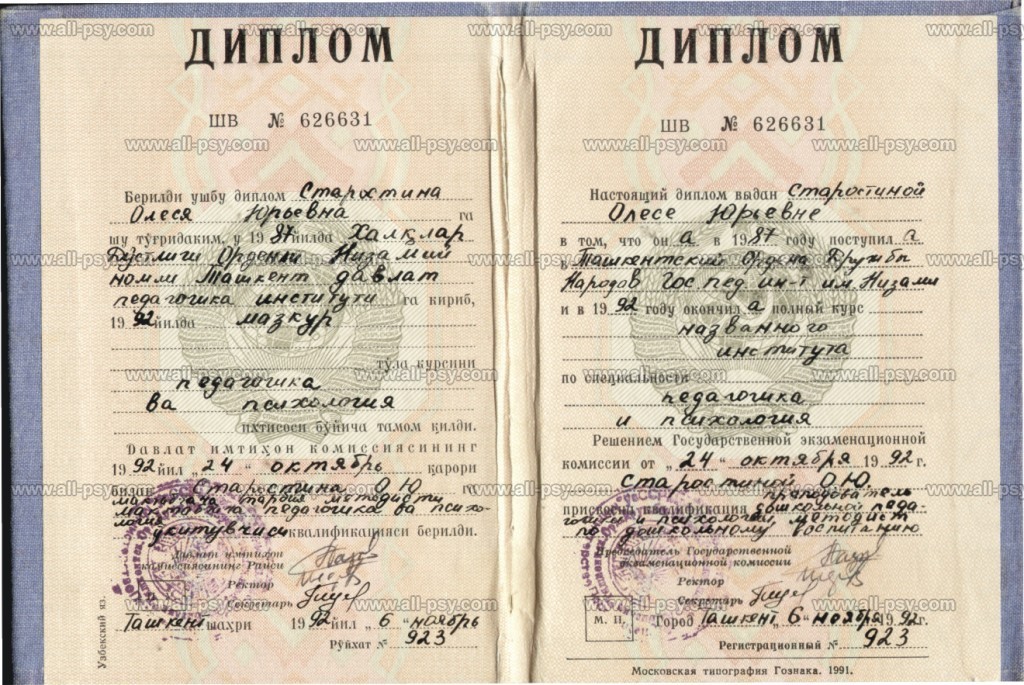 ДИПЛОМ
ШВ № 626631
Берилди ушбу диплом Старостина
Олеся Юрьевна га
шу тўғридаким, у 1987 йилда Халқлар
Дўстлиги Орденли Низамий
номли Ташкент давлат
педагогика институти га кириб,
1992 йилда мазкур
тўла курсини
педагогика
ва психология
ихтисоси бўйича тамом қилди.
Давлат имтиҳон комиссиясининг
1992 йил „24“ октябрь қарори
билан Старостина О.Ю. га
мактабгача тарбия методисти
мактабгача педагогика ва психо-
логия
укитувчиси квалификацияси берилди.
Давлат имтиҳон
комиссиясининг Раиси
Ректор
Секретарь
Ташкент шаҳри 1992 йил „6“ ноябрь
Рўйхат № 923
Узбекский яз.
ДИПЛОМ
ШВ № 626631
Настоящий диплом выдан Старостиной
Олесе Юрьевне
в том, что он а в 1987 году поступил а
в Ташкентский Ордена Дружбы
Народов Гос.пед.ин-т им. Низами
и в 1992 году окончил а полный курс
названного
института
по специальности
педагогика
и психология
Решением Государственной экзаменационной
комиссии от „24“ октября 1992 г.
Старостиной О.Ю.
присвоена квалификация преподаватель
дошкольной педа-
гогики и психологии, методист
по дошкольному воспитанию
Председатель Государственной
экзаменационной комиссии
Ректор
Секретарь
М. П.
Город Ташкент „6“ ноябрь 1992 г.
Регистрационный № 923
Московская типография Гознака. 1991.
www.all-psy.com